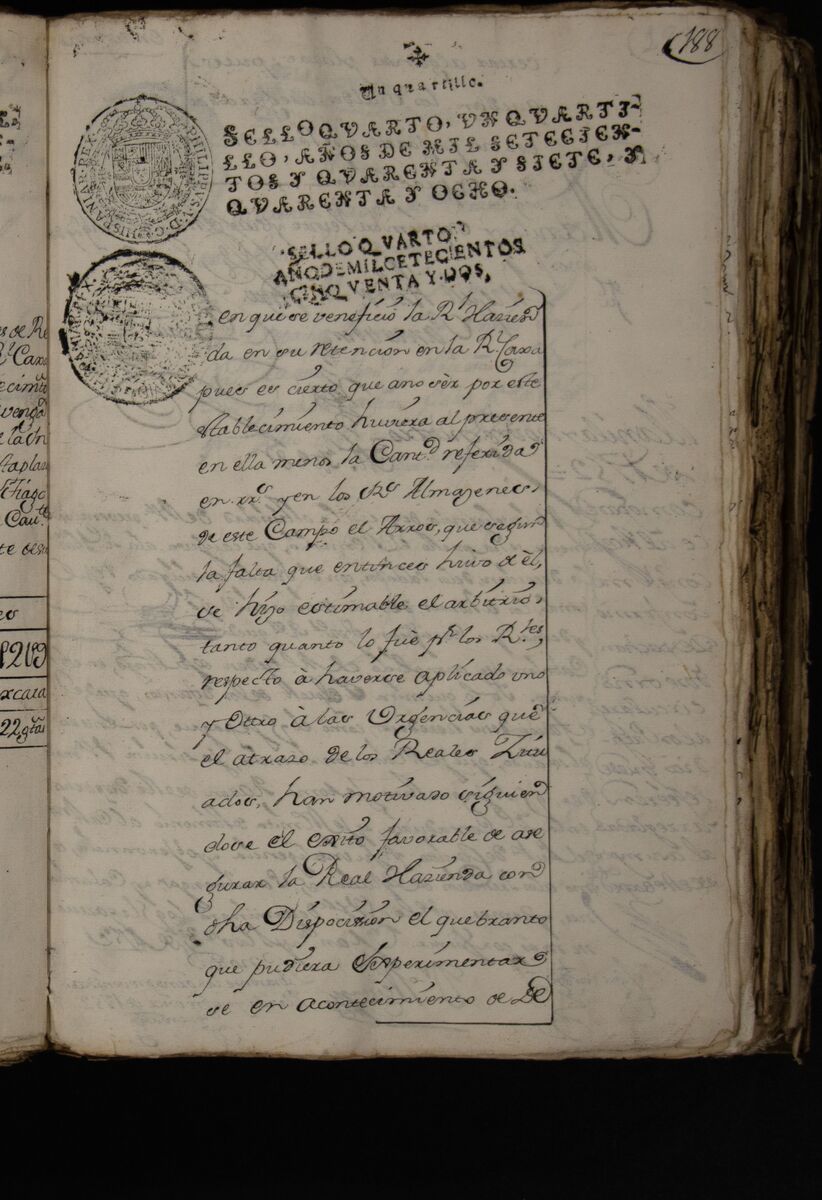 188
Un quartillo.
SELLO QVARTO, VN QVARTI-
LLO, AÑOS DE MIL SETECIEN-
TOS Y QVARENTA Y SIETE, Y
QVARENTA Y OCHO.
PHILIPPUS V D G HISPANIAR REX
SELLO QVARTO
AÑO DE MIL CETECIENTOS
CINQVENTA Y DOS,
en que se veneficiò la Rl. Hazien
da en su retencion en la Rl. Caxa
pues es cierto que ano sèr por este
establecimiento huviera al presente
en ella menos la Cantd. referida
en rrs. y en los Rs. Almazenes
de este Campo el Arros, que segun
la falta que entonces huvo de èl,
se hizo estimable el arbitrio,
tanto quanto lo fuè pr. los Rles,
respecto à haverse aplicado uno
y Ottro à las Urgencias que
el atrazo de los Reales Situ
ados, han motivado siguien
dose el exito favorable de ase
gurar la Real Hazienda con
dha Dispocizion el quebranto
que pudiera Experimentar
se en acontecimiento de De